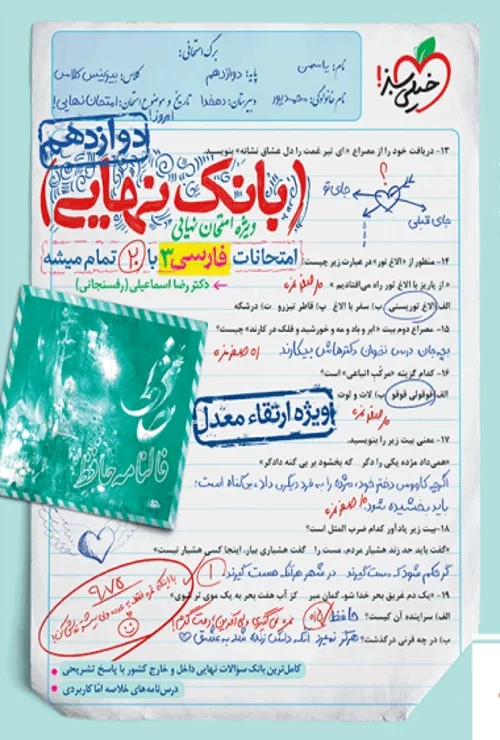 برگ امتحانی:
خیلی سبز!
نام: یاسمن پایه: دوازدهم کلاس: بیزینس کلاس
نام خانوادگی: محمدپور دبیرستان: دهخدا تاریخ و موضوع امتحان: امتحانا نهایی!
امروز!
دوازدهم
۱۳- دریافت خود را از مصراع «ای تیر غمت را دل عشاق نشانه» بنویسید.
؟
جای تو
جای قبلی
(بانک نهایی)
ویژه امتحان نهایی
امتحانات فارسی ۳ با ۲۰ تمام میشه
دکتر رضا اسماعیلی (رفسنجانی)
۱۴- منظور از «الاغ تور» در عبارت زیر چیست؟
« از پاریز با الاغ تور راه می‌افتادیم.»
الف) الاغ توریستی ب) سفر با الاغ پ) قاطر تیزرو ت) درشکه
۱۵- مصراع دوم بیت «ابر و باد و مه و خورشید و فلک در کارند» چیست؟
بچه‌جان درس نخون دکترهاش بیکارند
۱۶- کدام گزینه «مرکّب اتباعی» است؟
الف) قوقولی قوقو ب) کلات و لوت
ویژه ارتقاء معدل
۱۷- معنی بیت زیر را بنویسید.
«همی‌داد مژده یکی را دگر که بخشود بر بی گنه دادگر»
اگرچه کاووس دختر خود، مژده را به فرد دیگری داد، بی‌گناه است؛
باید بخشیده شود.
۱۸- بیت زیر یادآور کدام ضرب المثل است؟
«گفت باید حد زند هشیار مردم، مست را گفت هشیاری بیار، اینجا کسی هشیار نیست»
گر حکم شود که مست گیرند در شهر هر آنکه هست گیرند!
۱۹- «یک دم غریق بحر خدا شو، گمان مبر کز آب هفت بحر به یک موی تر شوی»
الف) سراینده آن کیست؟ حافظ
ب) در چه قرنی درگذشت؟ هرگز نمیرد آنکه دلش زنده شد به عشق
۹/۷۵
فالنامه حافظ
کامل‌ترین بانک سؤالات نهایی داخل و خارج کشور با پاسخ تشریحی
درس‌نامه‌های خلاصه امّا کاربردی